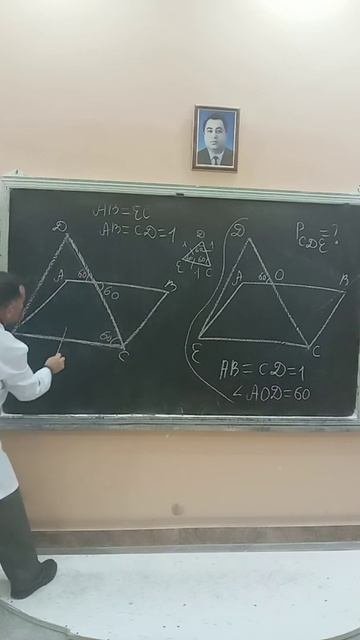 AB = EC
AB = CD = 1
D
A
60
60
B
60
C
D
1
60
1
60
60
E
1
C
P CDE = ?
D
A
60
O
B
E
C
AB = CD = 1
∠AOD = 60